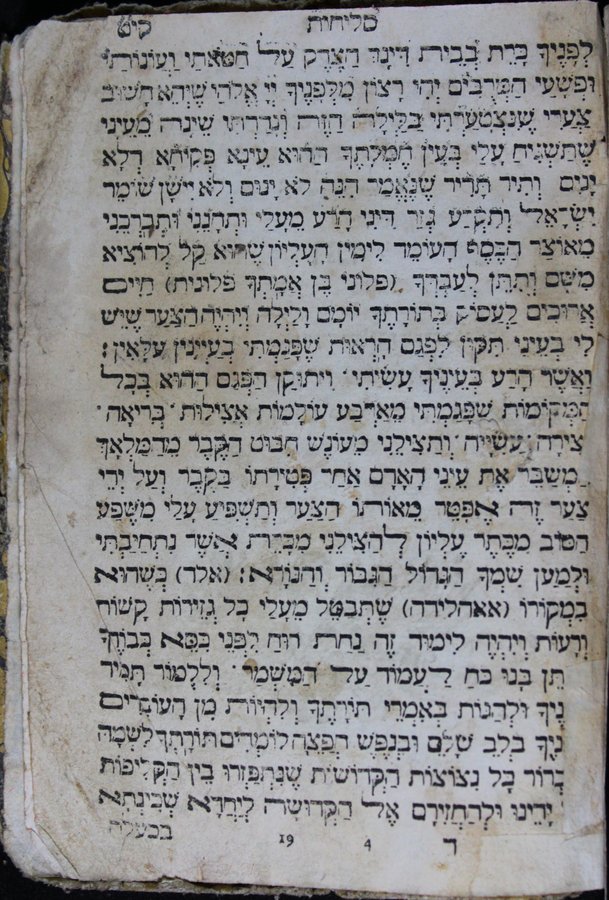 סליחות קיט
לְפָנֶיךָ כָּרֵת בְּבֵית דִּינְךָ הַצֶּדֶק עַל חַטֹּאתַי וַעֲוֹנוֹתַי
וּפְשָׁעַי הַמְּרֻבִּים יְהִי רָצוֹן מִלְּפָנֶיךָ יְיָ אֱלֹהַי שֶׁיְּהֵא חָשׁוּב
צַעֲרִי שֶׁנִּצְטַעַרְתִּי בַּלַּיְלָה הַזֶּה וְנָדַדְתִּי שֵׁינָה מֵעֵינַי
שֶׁתַּשְׁגִּיחַ עָלַי בְּעֵין חֶמְלָתֶךָ הַהוּא עֵינָא פְּקִיחָא דְּלָא
נָיִם וְתִיר תָּדִיר שֶׁנֶּאֱמַר הִנֵּה לֹא יָנוּם וְלֹא יִישָׁן שׁוֹמֵר
יִשְׂרָאֵל וְתִקְרַע גְּזַר דִּינִי הָרַע מֵעָלַי וּתְחָנֵּנִי וּתְבָרְכֵנִי
מֵאוֹצַר הַכֶּסֶף הָעוֹמֵד לִימִין הָעֶלְיוֹן שֶׁהוּא קַל לְהוֹצִיא
מִשָּׁם וְתִתֵּן לְעַבְדְּךָ (פלוני בֶּן אֲמָתְךָ פלונית) חַיִּים
אֲרוּכִּים לַעֲסוֹק בְּתוֹרָתֶךָ יוֹמָם וָלַיְלָה וְיִהְיֶה הַצַּעַר שֶׁיֵּשׁ
לִי בְּעֵינַי תִּקּוּן לִפְגַם הָרְאוּת שֶׁפָּגַמְתִּי בְּעַיְינִין עִלָּאִין:
וַאֲשֶׁר הָרַע בְּעֵינֶיךָ עָשִׂיתִי· וִיתוּקַן הַפְּגָם הַהוּא בְּכָל
הַמְּקוֹמוֹת שֶׁפָּגַמְתִּי מֵאַרְבַּע עוֹלָמוֹת אֲצִילוּת· בְּרִיאָה·
יְצִירָה· עֲשִׂיָּיה· וְתַצִּילֵנִי מֵעוֹנֶשׁ חִבּוּט הַקֶּבֶר מֵהַמַּלְאָךְ
הַמְשַׁבֵּר אֶת עֵינֵי הָאָדָם אַחַר פְּטִירָתוֹ בַּקֶּבֶר וְעַל יְדֵי
צַעַר זֶה אֶפָּטֵר מֵאוֹתוֹ הַצַּעַר וְתַשְׁפִּיעַ עָלַי מִשֶּׁפַע
הַטּוֹב מִכֶּתֶר עֶלְיוֹן לְהַצִּילֵנִי מִכָּרֵת אֲשֶׁר נִתְחַיַּבְתִּי
וּלְמַעַן שִׁמְךָ הַגָּדוֹל הַגִּבּוֹר וְהַנּוֹרָא: (אלד) כְּשֶׁהוּא
בִּמְקוֹרוֹ (אאהלידה) שֶׁתְּבַטֵּל מֵעָלַי כָּל גְּזֵירוֹת קָשׁוֹת
וְרָעוֹת וְיִהְיֶה לִימוּד זֶה נַחַת רוּחַ לִפְנֵי כִּסֵּא כְּבוֹדֶךָ
תֵּן בָּנוּ כֹּחַ לַעֲמוֹד עַל הַמִּשְׁמָר· וְלִלְמוֹד תָּמִיד
וְלַהֲגוֹת בְּאִמְרֵי תוֹרָתֶךָ וְלִהְיוֹת מִן הָעוֹמְדִים
בְּלֵב שָׁלֵם וּבְנֶפֶשׁ חֲפֵצָה לוֹמְדִים תּוֹרָתֶךָ לִשְׁמָהּ
כָּל נִצוֹצוֹת הַקְּדוֹשׁוֹת שֶׁנִּתְפַּזְּרוּ בֵּין הַקְּלִיפּוֹת
יָדֵינוּ וּלְהַחֲזִירָם אֶל הַקְּדוּשָּׁה לְיַחֲדָא שְׁכִינְתָּא
ד 4 19 בבעלה